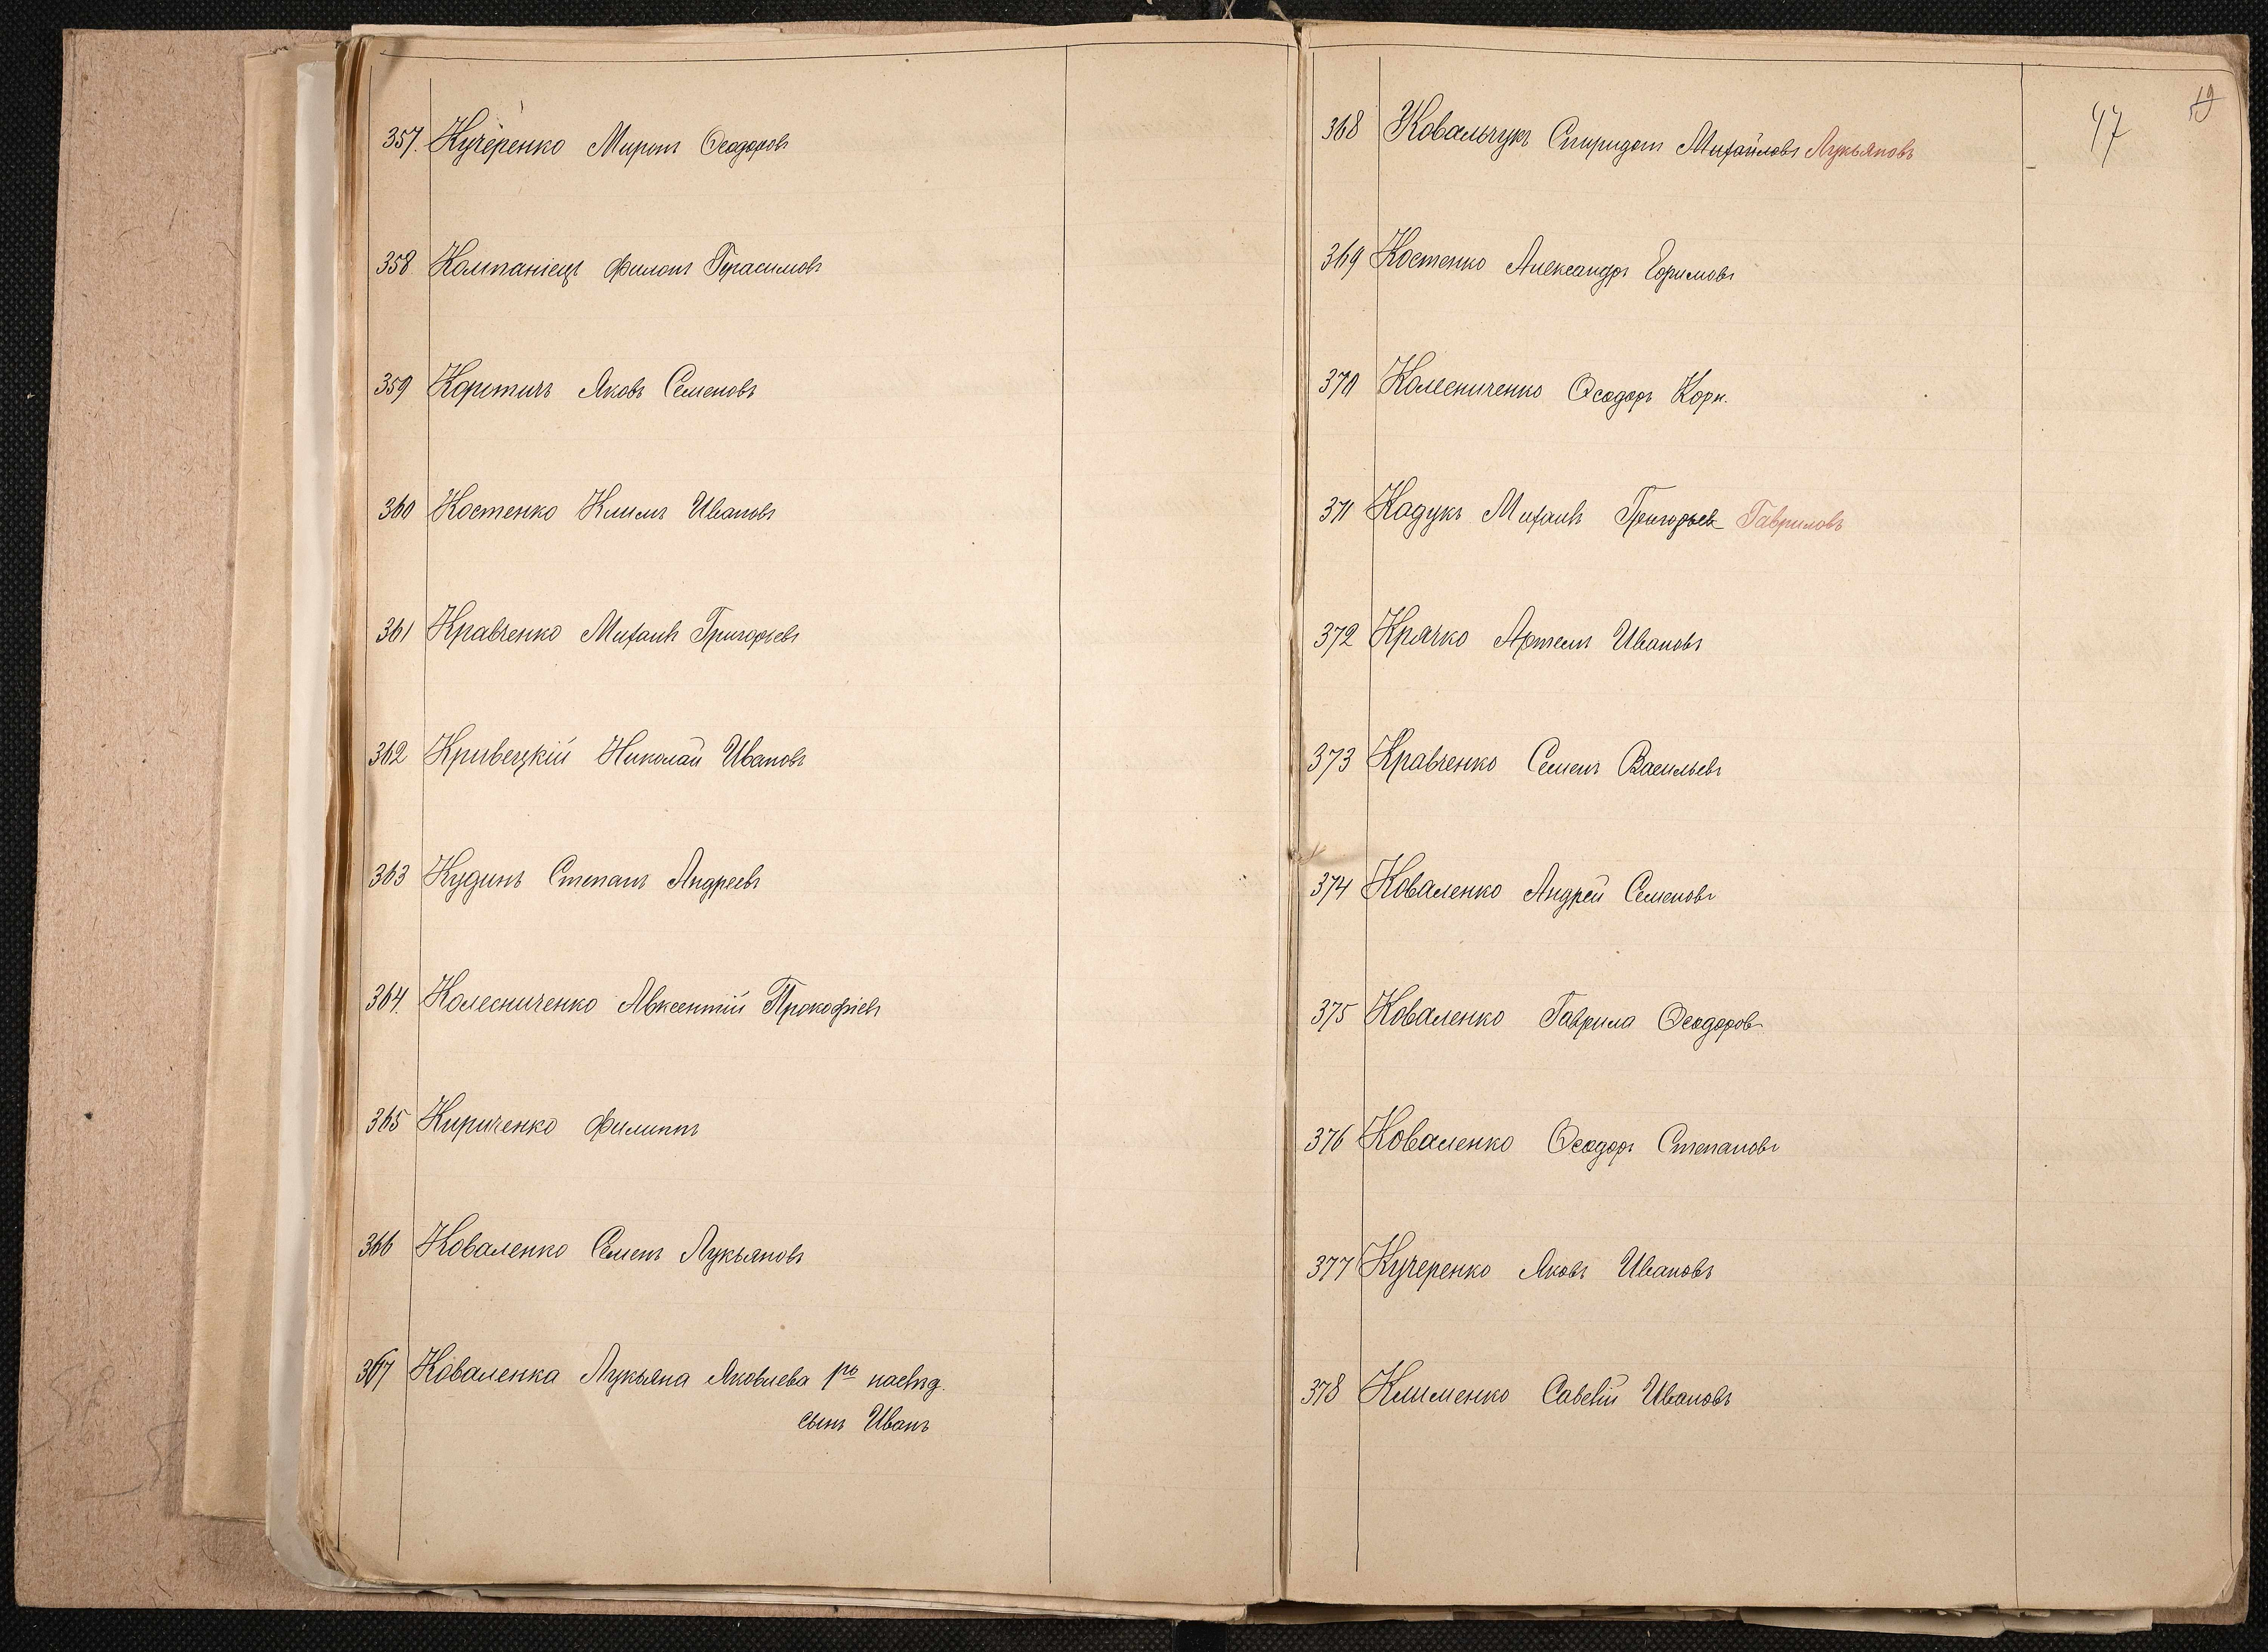 357. Кучеренко Миронъ Ѳеодоровъ
358 Компаніецъ Филонъ Герасимовъ
359 Коротичъ Яковъ Семеновъ
360 Костенко Климъ Ивановъ
361 Кравченко Михаилъ Григорьевъ
362 Кривецкій Николай Ивановъ
363 Кудинъ Степанъ Андреевъ
364. Колесниченко Авксентій Прокофіевъ
365 Кириченко Филиппъ
366 Коваленко Семенъ Лукьяновъ
367 Коваленка Лукьяна Яковлева наслѣд.
сынъ Иванъ
47 19
368 Ковальчукъ Спиридонъ Михайловъ Лукьяновъ
369 Костенко Александръ Ефимовъ
370 Колесниченко Ѳеодоръ Корн.
371 Кадукъ Михаилъ Григорьев Гавриловъ
372 Крячко Артемъ Ивановъ
373 Кравченко Семенъ Васильевъ
374 Коваленко Андрей Семеновъ
375 Коваленко Гаврила Ѳеодоров
376 Коваленко Ѳеодоръ Степановъ
377 Кучеренко Яковъ Ивановъ
378 Клименко Савелій Ивановъ